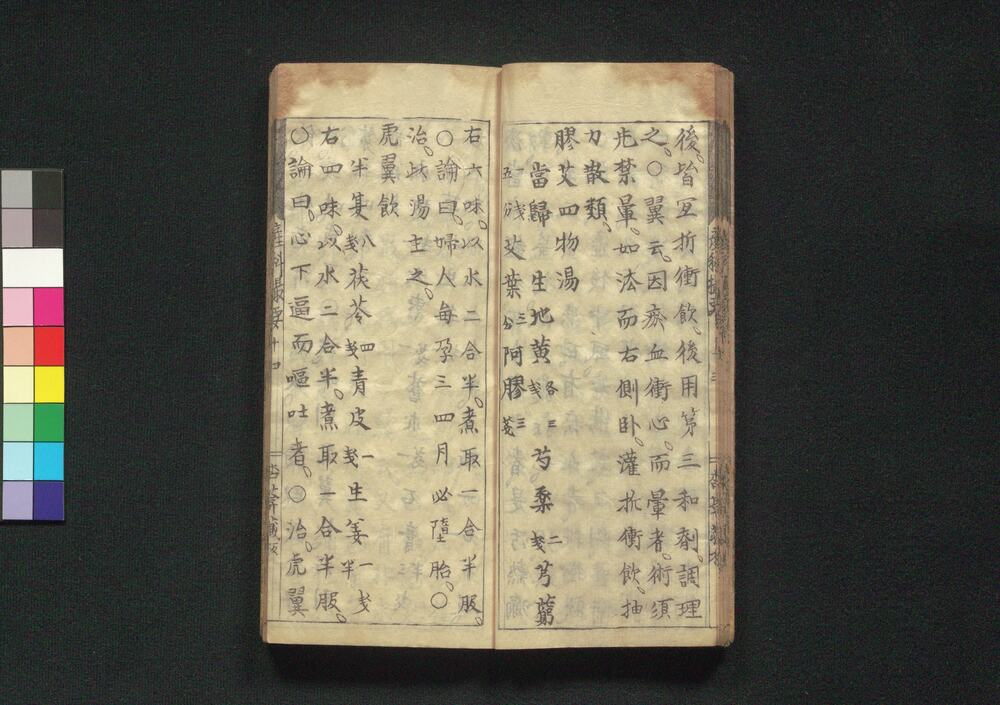 後皆宜折衝飲後用第三和剤調理
之○翼云因瘀血衝心而暈者術須
先禁暈如法而右側卧灌折衝飲抽
刀散類
膠艾四物湯
當歸生地黄各三戔芍薬二戔芎藭
一戔五分艾葉三分阿膠三戔
右六味以水二合半煮取一合半服
○論曰婦人每孕三四月必墮胎○
治此湯主之
虎翼飲
半夏八戔茯苓四戔青皮一戔生姜一戔半
右四味以水二合半煮取一合半服
○論曰心下逼而嘔吐者○治虎翼
産科 十四